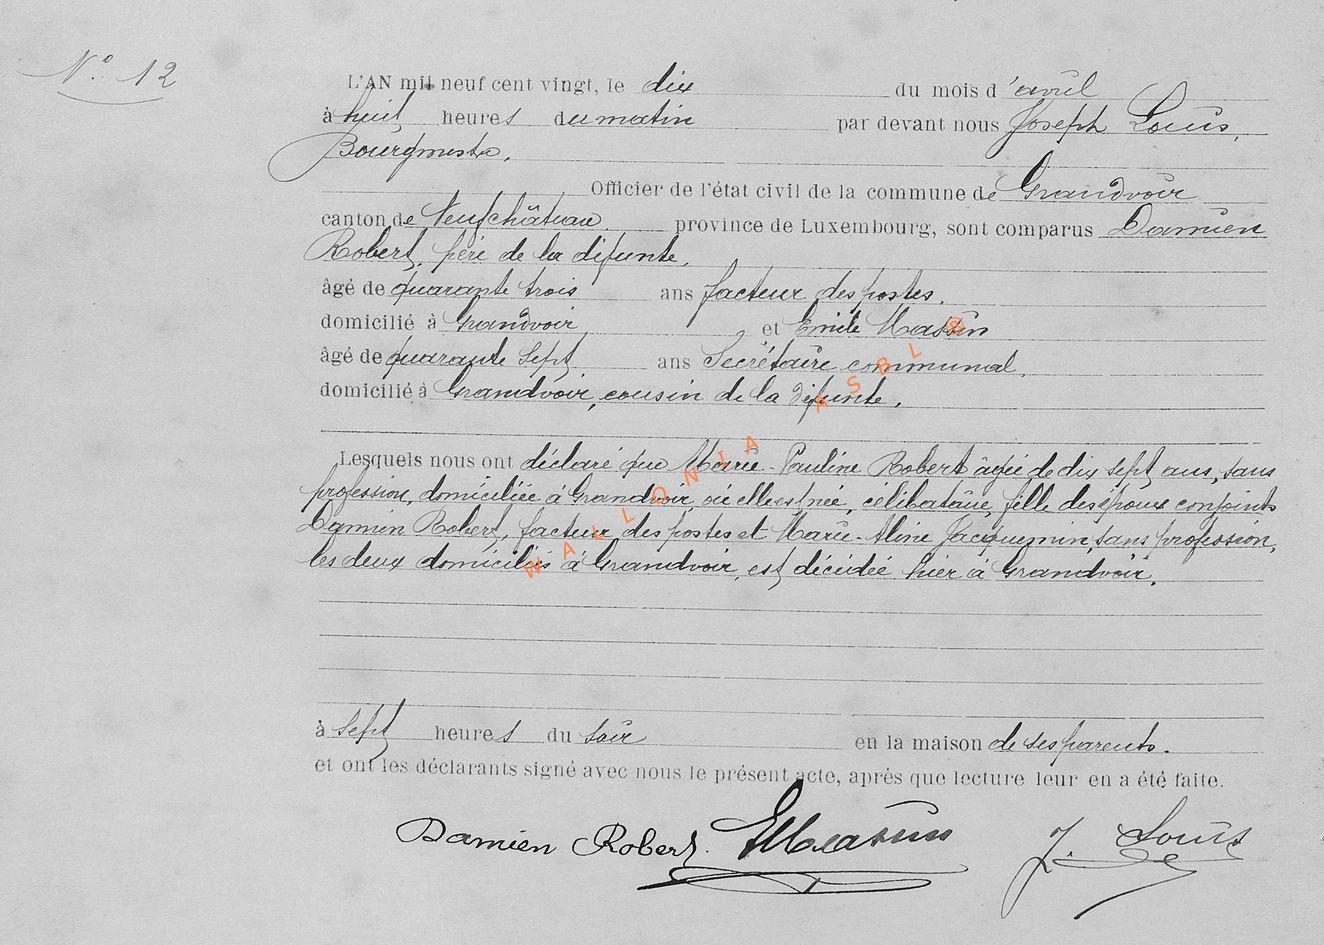 N° 12
L'AN mil neuf cent vingt, le dix du mois d'avril
à huit heures du matin par devant nous Joseph Louis,
Bourgmestre,
Officier de l'état civil de la commune de Grandvoir
canton de Neufchâteau province de Luxembourg, sont comparus Damien
Robert, père de la défunte,
âgé de quarante trois ans facteur des postes,
domicilié à Grandvoir, et Emile Massin
âgé de quarante sept ans Secrétaire communal,
domicilié à Grandvoir, cousin de la défunte,
Lesquels nous ont déclaré que Marie-Pauline Robert âgée de dix sept ans, sans
profession, domiciliée à Grandvoir, où elle est née, célibataire, fille des époux conjoints
Damien Robert, facteur des postes et Marie-Aline Jacquemin, sans profession,
les deux domiciliés à Grandvoir, est décédée hier à Grandvoir,
à sept heures du soir en la maison de ses parents.
et ont les déclarants signé avec nous le présent acte, après que lecture leur en a été faite.
Damien Robert. EMassin J. Louis
WALLONIA ASBL ®